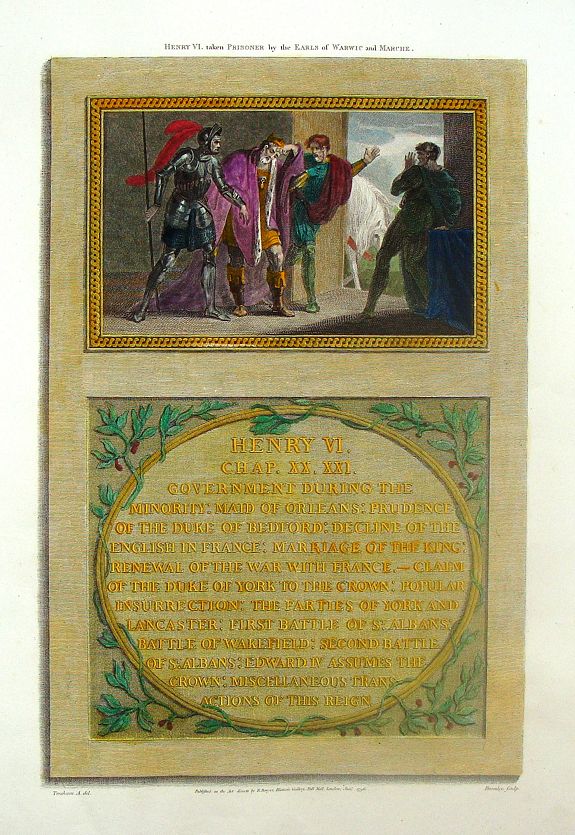 HENRY VI. taken PRISONER by the EARLS of WARWIC and MARCHE.
HENRY VI.
CHAP. XX. XXI.
GOVERNMENT DURING THE
MINORITY: MAID OF ORLEANS: PRUDENCE
OF THE DUKE OF BEDFORD: DECLINE OF THE
ENGLISH IN FRANCE: MARRIAGE OF THE KING:
RENEWAL OF THE WAR WITH FRANCE.— CLAIM
OF THE DUKE OF YORK TO THE CROWN: POPULAR
INSURRECTION: THE PARTIES OF YORK AND
LANCASTER: FIRST BATTLE OF ST. ALBANS:
BATTLE OF WAKEFIELD: SECOND BATTLE
OF ST. ALBANS: EDWARD IV ASSUMES THE
CROWN: MISCELLANEOUS TRANS-
ACTIONS OF THIS REIGN
Tomkins A. del.
Published as the Act directs by R. Bowyer, Historic Gallery, Pall Mall, London,
Bromley sculp.